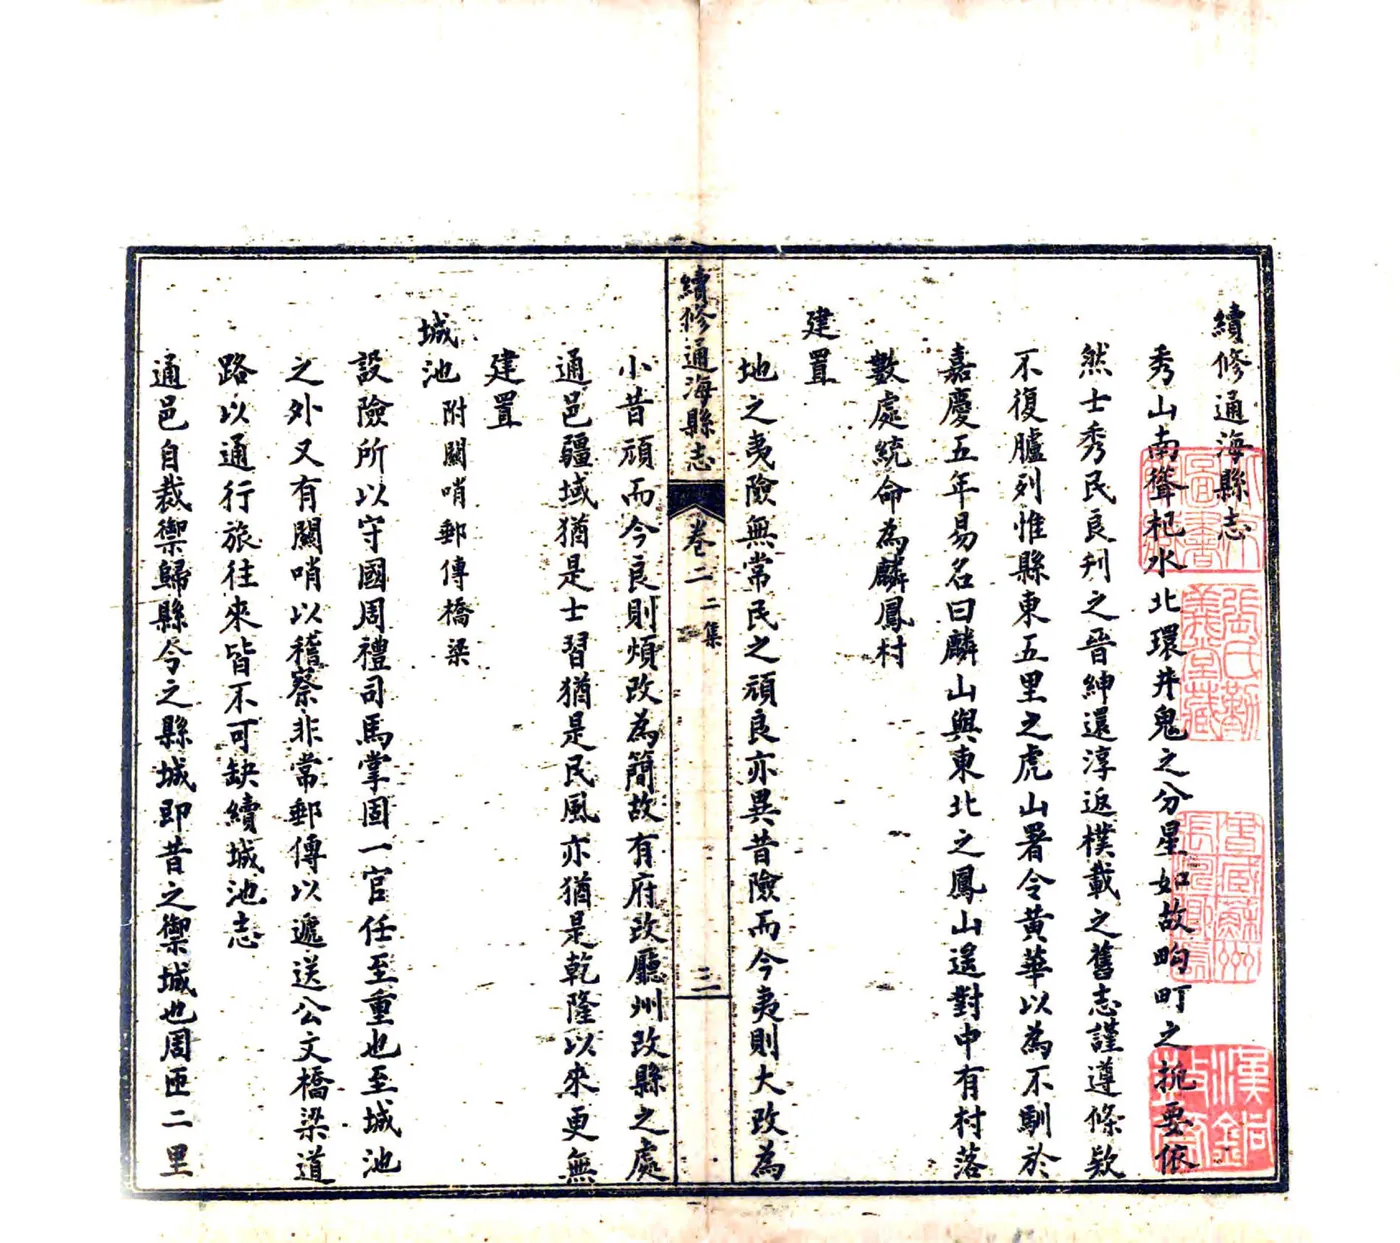 續修通海縣志
秀山南聳杞水北環井鬼之分星如故畇町之扼要依
然士秀民良判之晉紳還淳返樸載之舊志謹遵條欵
不復臚列惟縣東五里之虎山署令黃華以為不馴於
嘉慶五年易名曰麟山與東北之鳳山遙對中有村落
數處統命為麟鳳村
建置
地之夷險無常民之頑良亦異昔險而今夷則大改為
續修通海縣志 卷二 二集 三
小昔頑而今良則煩改為簡故有府改廳州改縣之處
通邑疆域猶是士習猶是民風亦猶是乾隆以來更無
建置
城池 附關哨郵傳橋梁
設險所以守國周禮司馬掌固一官任至重也至城池
之外又有關哨以稽察非常郵傳以遞送公文橋梁道
路以通行旅往來皆不可缺續城池志
通邑自裁禦歸縣今之縣城即昔之禦城也周匝二里